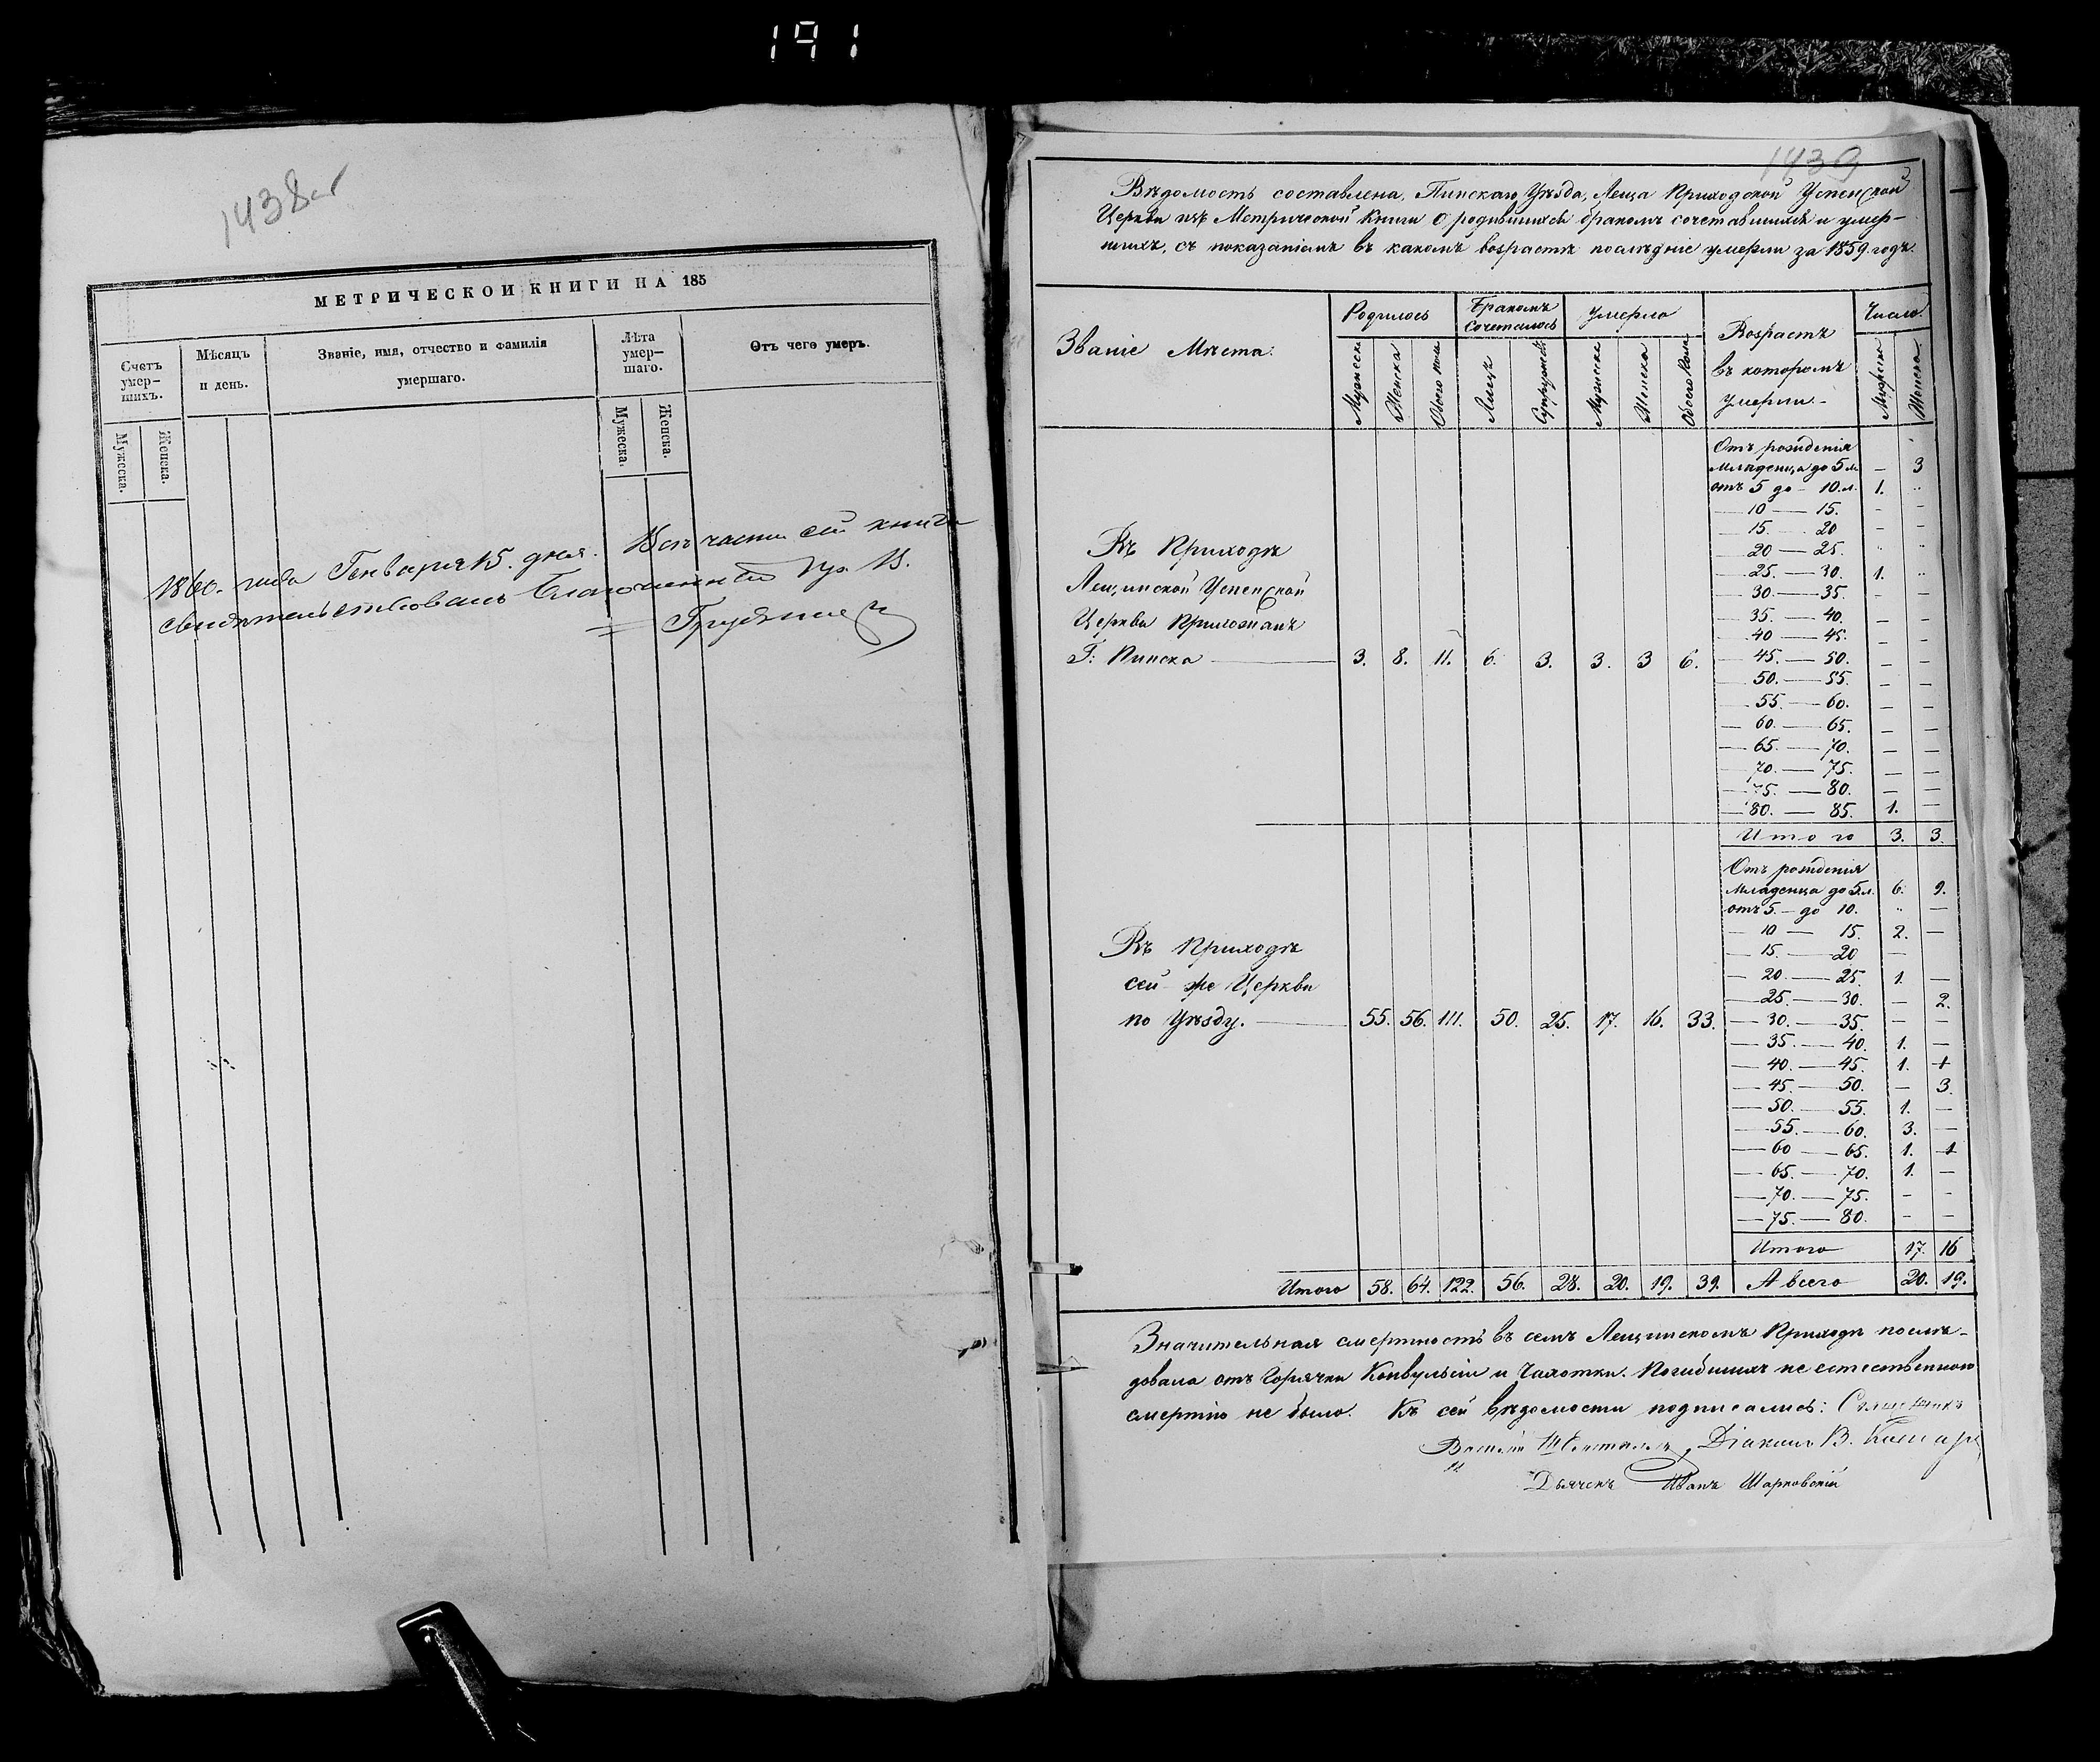 191
1438об
МЕТРИЧЕСКОЙ КНИГИ НА 185
Счетъ умер-
шихъ.
Мѣсяцъ
и день.
Званіе, имя, отчество и фамилія
умершаго.
Лѣта
умер-
шаго.
Отъ чего умеръ.
Мужеска.
Женска.
Мужеска.
Женска.
1860. года Генваря 15. дня. Всѣ части сей книги
свидѣтельствовалъ Благочинный
1439
Вѣдомость составлена, Пинскаго Уѣзда, Леща Приходской Успенской
Церкви изъ Метрической Книги о родившихся бракомъ сочетавшихся и умер-
шихъ, съ показаніемъ въ какомъ возрастѣ послѣдніе умерли за 1859. годъ.
Званіе Мѣста.
Родилось
Бракомъ
Сочеталось
Умерло
Возрастъ
въ которомъ
умерли.-
Число.
Мужеска
Женска
Обоего пола
Лицъ
Супружествъ
Мужеска
Женска
Обоего Пола
Мужеска
Женска.
Отъ рожденія
младенца до 5 л. — 3
отъ 5 до – 10. л. 1. "
10 — 15. - -
15. — 20 - -
20 — 25. " "
25. — 30. 1. "
30. — 35. - -
35. — 40. - -
40 — 45. - -
45. — 50. - -
50. — 55. - -
55. — 60. - -
60. — 65. - -
65. — 70. - -
70. — 75. - -
75. — 80. - -
80. — 85. 1. -
Итого 3. 3.
Въ Приходѣ
Лещинской Успенской
Церкви Прихожанъ
Г: Пинска — 3. 8. 11. 6. 3. 3. 3 6.
Отъ рожденія
младенца до 5 л. 6. 9.
отъ 5. – до 10. " —
10 — 15. 2. —
15. — 20 —
20. — 25. 1. —
25. — 30. — 2.
30. — 35. — —
35. — 40. 1. —
40. — 45. 1. 1
45. — 50. — 3.
50. — 55. 1. —
55. — 60. 3. —
60 — 65. 1. 1
65. — 70. 1. —
70. — 75. - -
75. — 80. - -
Итого 17. 16
Въ Приходѣ
сей же Церкви
по Уѣзду. — 55. 56. 111. 50. 25. 17. 16. 33.
Итого 58. 64. 122. 56. 28. 20. 19. 39. А всего 20. 19.
Значительная смертность въ семъ Лещинскомъ Приходѣ послѣ-
довала отъ Горячки Конвульсіи и Чахотки. Погибшихъ не естественною
смертію не было. Къ сей вѣдомости подписались: Священникъ
Василій Діаконъ В.
Дьячекъ Иванъ Шарковскій